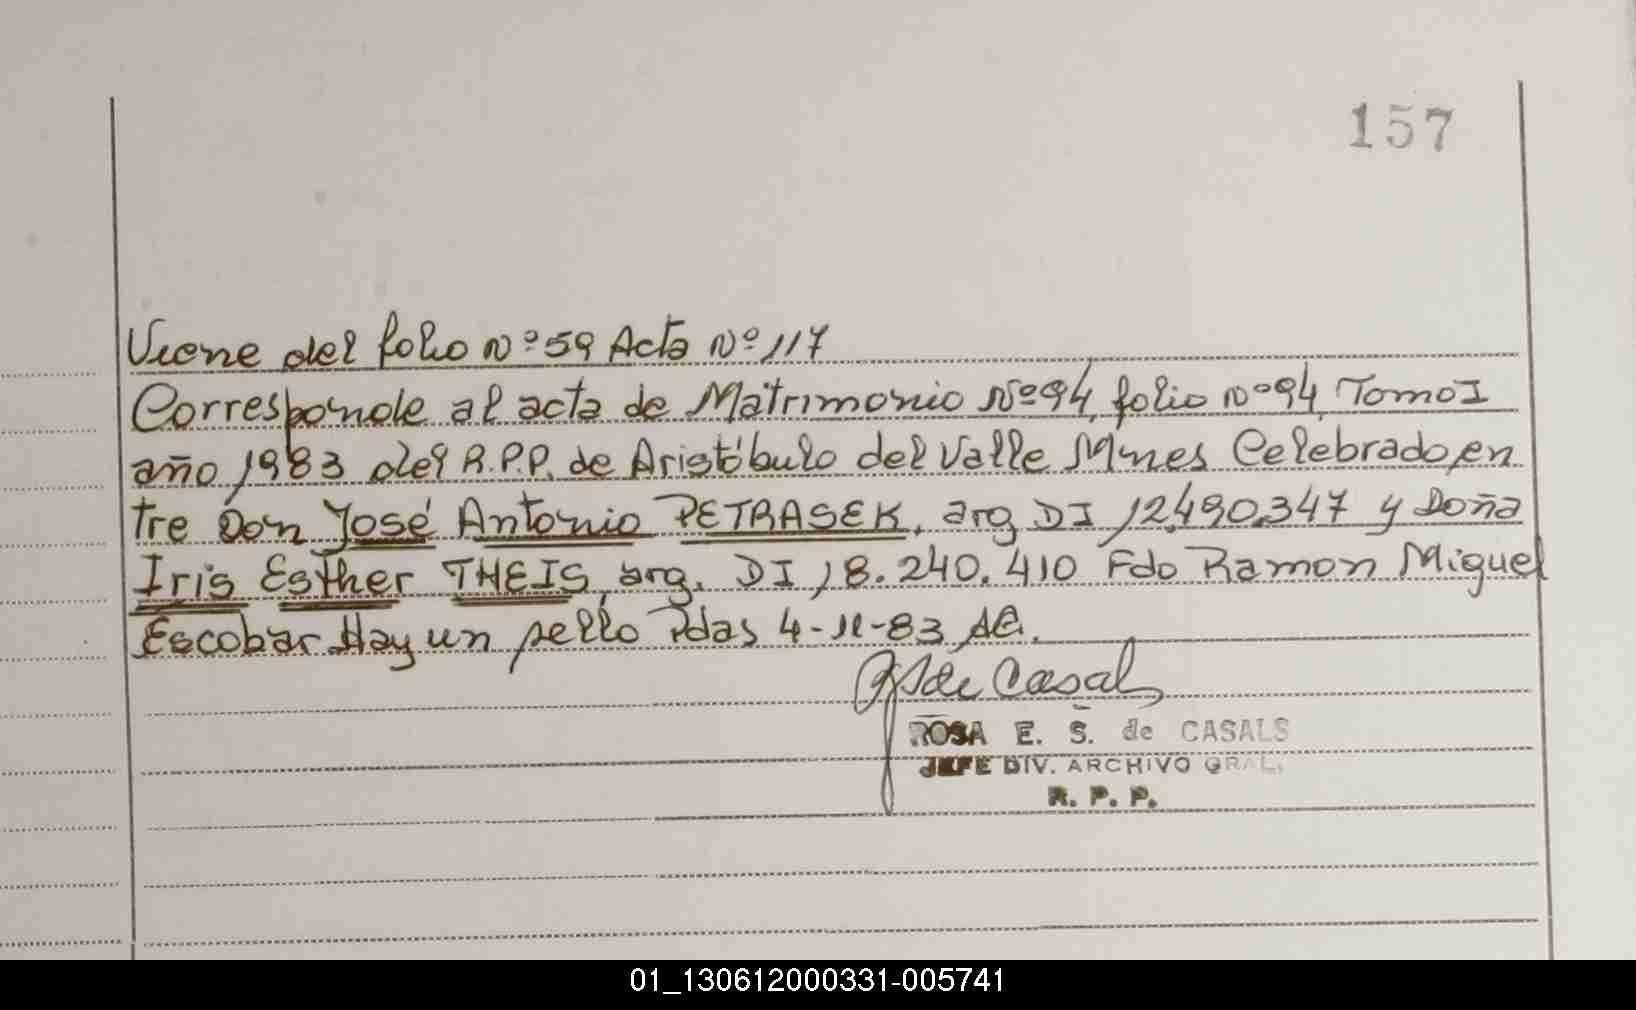 157
Viene del folio Nº 59 Acta Nº 117
Corresponde al acta de Matrimonio Nº 94, folio Nº 94 Tomo I
año 1983 del R.P.P. de Aristóbulo del Valle Mnes Celebrado en
tre Don José Antonio PETRASEK, arg DI 12.490.347 y Doña
Iris Esther THEIS, arg. DI 18.240.410 Fdo Ramon Miguel
Escobar Hay un sello Pdas 4-11-83
de Casals
ROSA E. S. de CASALS
JEFE DIV. ARCHIVO GRAL.
R. P. P.
01_130612000331-005741